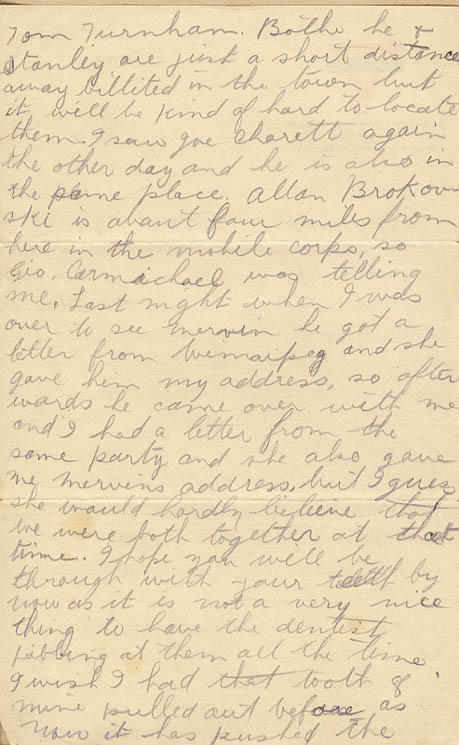 Tom Turnham. Bothe he &
Stanley are just a short distance
away billited in the town but
it will be kind of hard to locate
them. I saw goe Charett again
the other day and he is also in
the same place, Allan Brokow
ski is about four miles from
here in the mobile corps, so
Geo. Carmichael was telling
me. Last night when I was
over to see mervin he got a
letter from Winnaipeg and she
gave him my address, so after
wards he came over with me
and I had a letter from the
same party and she also gave
me mervins address, but I gues
she would hardly believe that
we were both together at that
time. I hope you will be
through with your teeth by
now as it is not a very nice
thing to have the dentist
jabbing at them all the time
I wish I had that tooth of
mine pulled out before as
now it has pushed the